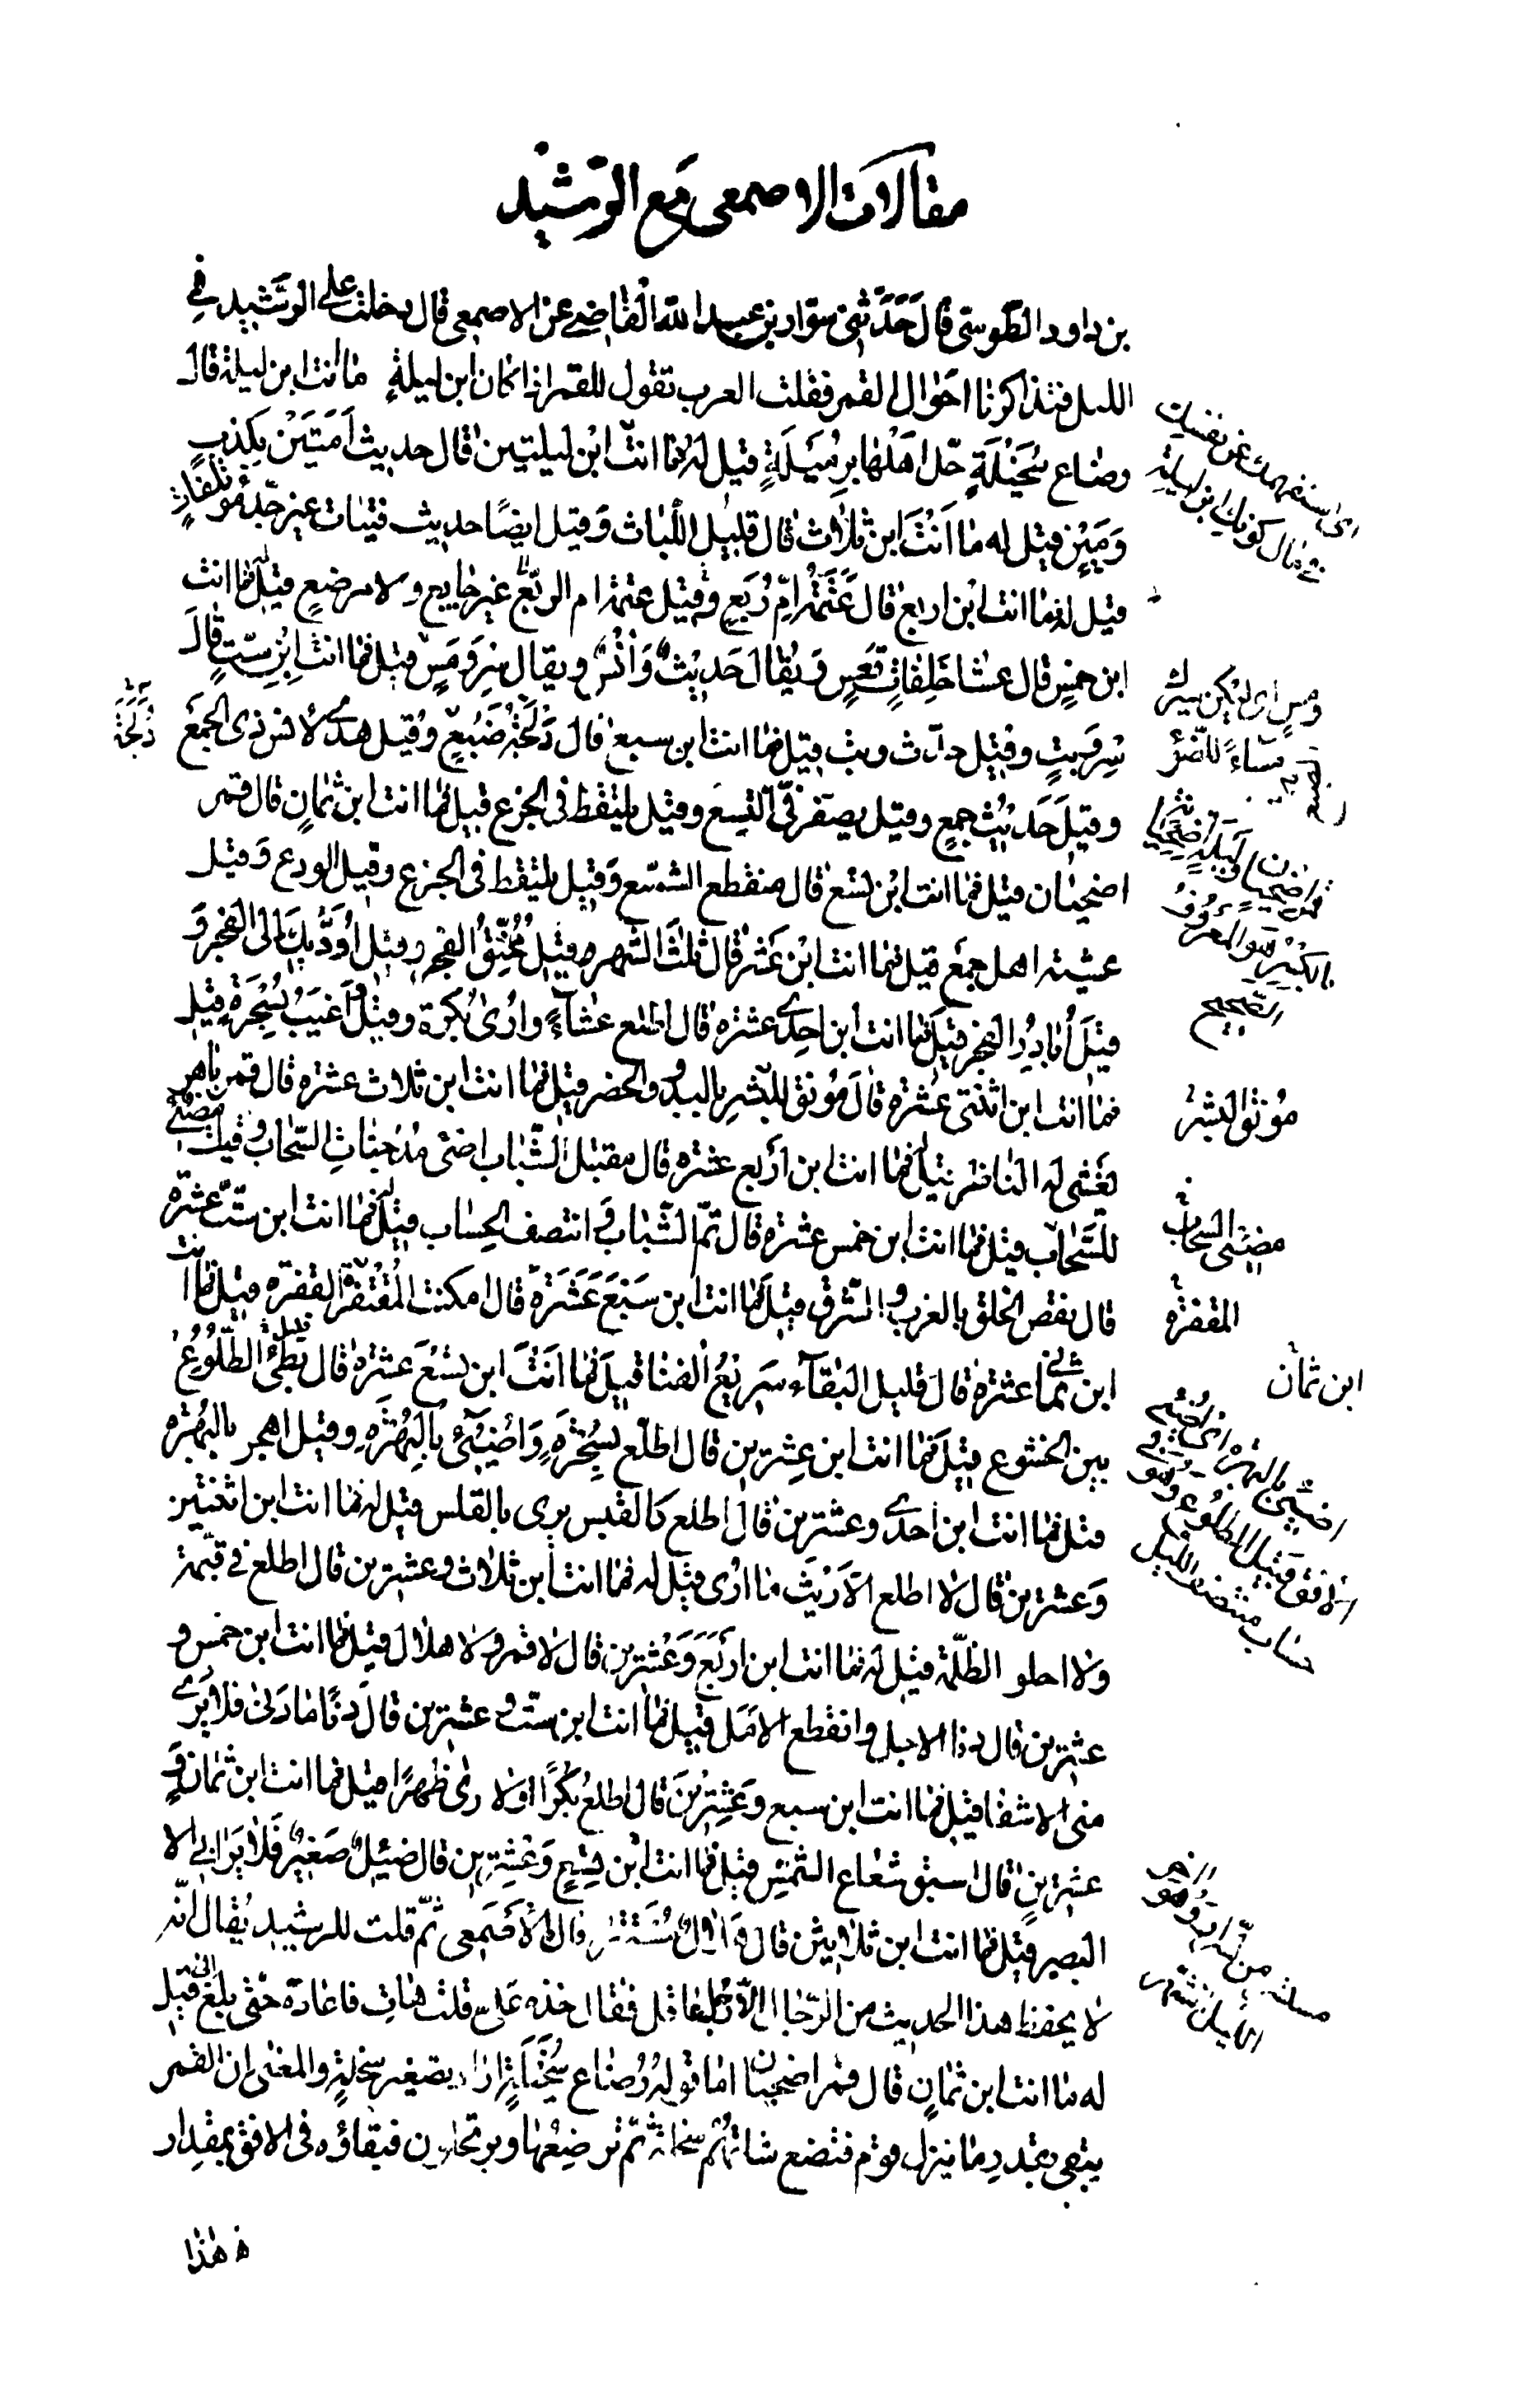 مقالات الاصمعى مع الرشيد
بن داود الطوسى قَالَ حَدَّثَنِى سوّار بن عبيد الله القاضى عن الاصمعى قال دخلت على الرشيد فى
الليل فتذاكرنا احوال القمر فقلت العرب تقول للقمر اذا كان ابن ليلةٍ ما انت ابن ليلة قال
رضاع سُخَيْلَةٍ حلّ اهلها برميلةٍ قيل له فما انت ابن ليلتين قال حديث اَمَتَيْن بكذبٍ
وَمَيْنٍ قيل له ما اَنْتَ ابن ثلاث قال قليل اللباث وَقيل ايضًا حديث فتيات غير جدّ مؤتلفاتٍ
قيل له فما انت ابن اربع قال عَتَمَةُ امّ رُبَعٍ وقيل عتمة ام الربع غير جايع ولا مرضع قيل له فما انت
ابن خمسٍ قال عشا خَلِفاتٍ قعسٍ وَيُقال حَديثٌ وَاُنْسٌ ويقال سِر وَمَسِّ قيل فما انت ابن ستٍّ قالَ
سِر وَبِتٍ وقيل حدّث وبت قيل فما انت ابن سبع قال دُلْجَةُ ضَبُعٍ وقيل هدىً لانس ذى الجمع
وقيلَ حَديث جمعٍ وقيل يصفر فى التسع وقيل يلتقط فى الجزع قيل فما انت ابن ثمانٍ قال قمر
اضحيان قيل فما انت ابن تسْع قال منقطع الشسْع وَقيل يلتقط فى الجزع وقيل الودع وَقيل
عشية اهل جمع قيل فما انت ابن عَشْر قال ثلث الشهر وقيل مُخَنِّقُ الفجر وقيل اُوَدّيك الى الفجر وَ
قيلَ اُبادِرُ الفجر قيل فما انت ابن احدى عشره قال اطلع عشاءً وارى بُكرة وقيل وَاَغيَبُ بسُحرةٍ قيل
فما انت ابن اثنتى عشرة قَالَ مُونق للبشر بالبدو والحضر قيل فما انت ابن ثلاث عشره قال قمر باهر
يَغْشى له الناظر قيل فما انت ابن اَربع عشره قال مقتبل الشباب اضئ مُدجِنات السّحاب وقيل مضئ
للسَّحاب قيل فما انت ابن خمس عشره قال تمّ الشباب وَانتصف الحساب قيل فما انت ابن ستّ عشره
قال نقص الخلق بالغرب والشرق قيل فما انت ابن سَبْعَ عَشَرَة قال امكنت المُقْتَفِرَ القفره قيل فما انت
ابن ثمانى عشره قال قليل البقآء سَريْعُ الفنا قيل فما اَنْتَ ابن تِسْعَ عشره قال بَطِئُ الطُّلُوعِ
بين الخشوع قيل فما انت ابن عِشرين قال اطلع بسُحْرَه وَاُضِيئُ بالبُهْرَه وقيل اهجر بالبهره
قيل فما انت ابن احدى وعشرين قال اطلع كالقبس يرى بالغلس قيل له فما انت ابن اثنتين
وَعشرين قال لا اطلع الا رَيْثَ ما ارى قيل له فما انت ابن ثلاث وعشرين قال اطلع فى قتمه
ولا اجلو الظلمة قيل له فما انت ابن اَربَعَ وَعشرين قال لا قمر ولا هلال قيل فما انت ابن خمس و
عشرين قال دنا الاجل وانقطع الامَل قيل فما انت ابن ستّ و عشرين قال دنا ما دنى فلا يُرى
منى الا شفا قيل فما انت ابن سبع وَعِشرينَ قال اطلع بكرًا ولا ارى ظهرًا قيل فما انت ابن ثمان وَ
عشرين قال اسبق شعاع الشمس قيل فما انت ابن تسع وَعشرين قال ضئيل صَغير فَلا يَرانى الا
البصير قيل فما انت ابن ثلاثين قال هلال مستقر قال الاصمعى ثمّ قلت للرشيد يُقال انّه
لا يحفظ هذا الحديث من الرّجال الا عاقل فقال خذه عَلىّ قلت هات فاعاده حتّى بلغ الى قيل
له ما انت ابن ثمانٍ قال قمر اضحيان اما قوله رُضاع سُخَيْلَةٍ اراد تصغير سخلةٍ والمعنى ان القمر
يبقى بقدر ما ينزل قوم فتضع شاتهم سخلة ثمّ ترضِعُها ويرتحلون فبقاؤه فى الافق بمقدار
هذا
اى استفهمك عن نفسك
فى حال كونك ابن ليلة
دُلْجَة
بالكسْر هو المعروف
الصحيح
مُونق البشرُ
مضئ السحاب
المقفره
ابن ثمان
الافق قبيل الطلوع وهو
حساب منتصف الليل